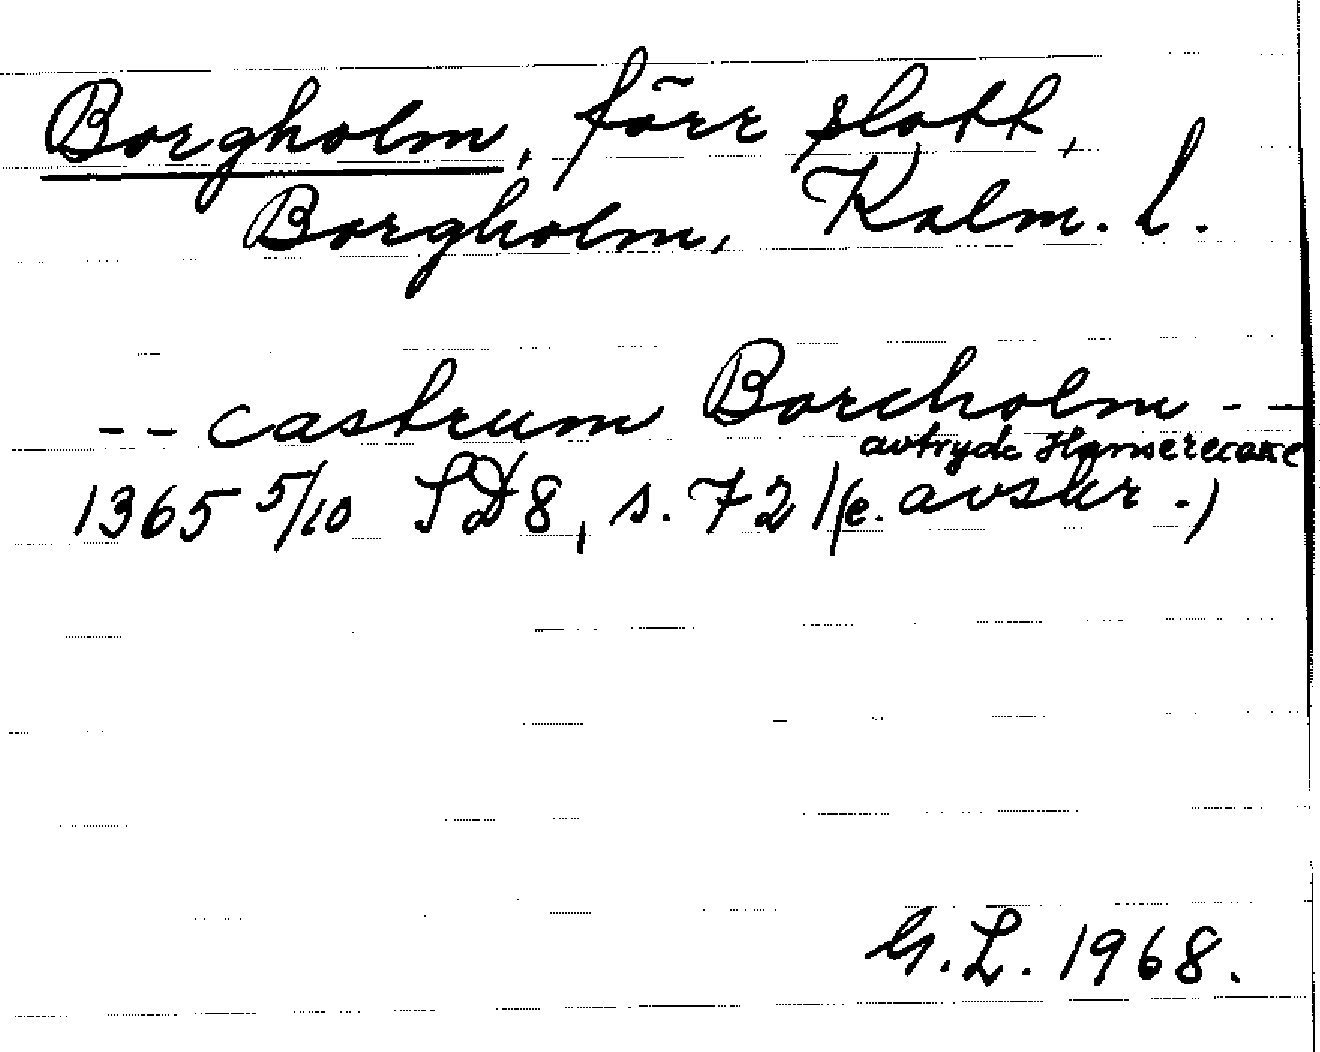 Borgholm, förr slott,
Borgholm, Kalm. l.
-- castrum Borcholm --
avtryck Hanserecesse
1365 5/10 SD 8, s. 721 (e. avskr.)
G. L. 1968.